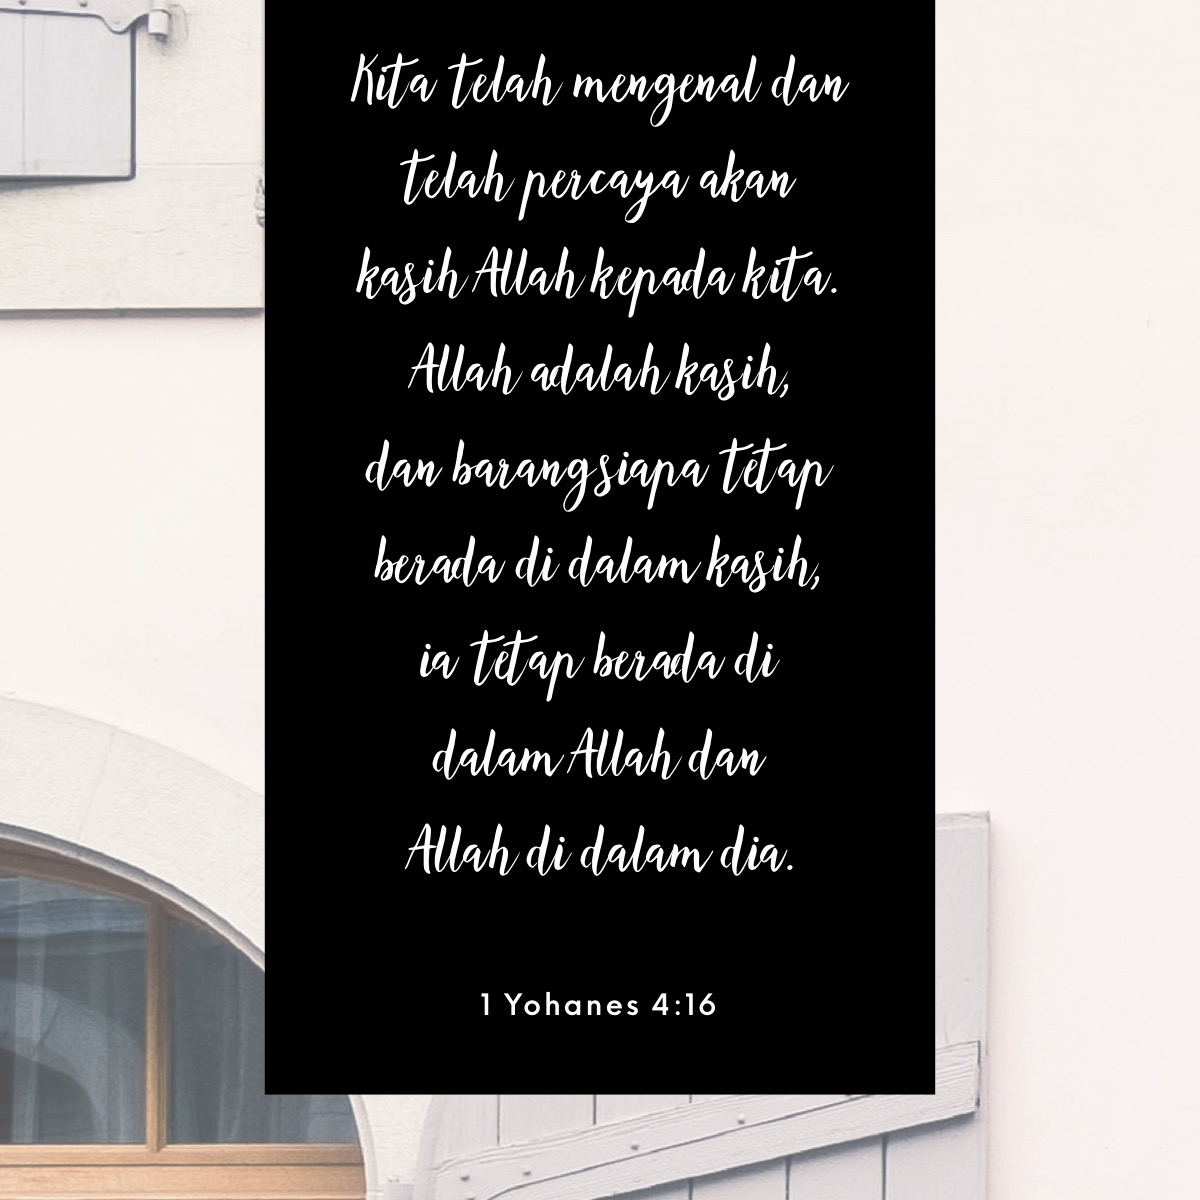 Kita telah mengenal dan
telah percaya akan
kasih Allah kepada kita.
Allah adalah kasih,
dan barangsiapa tetap
berada di dalam kasih,
ia tetap berada di
dalam Allah dan
Allah di dalam dia.
1 Yohanes 4:16